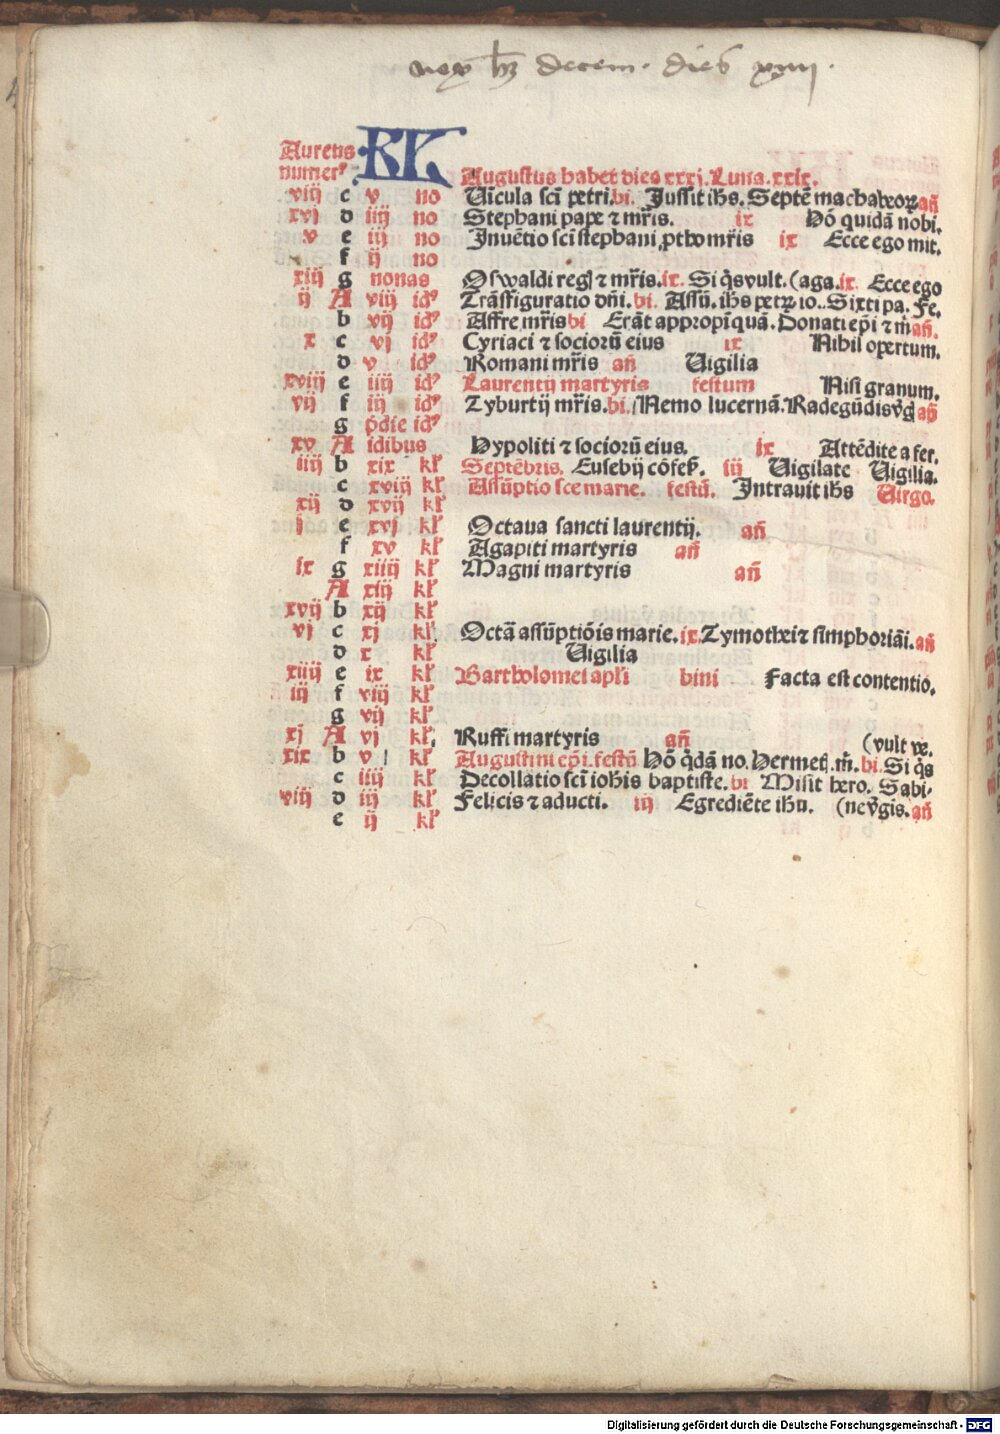 nox hꝫ decem. dies xiiij.
KL
Aureus
numerꝰ Augustus habet dies xxxj. Luna. xxix.
viij c v no Uicula sc̄i petri. bi. Jussit ih̄s. Septē machabeoꝝ an̄
xvj d iiij no Stephani pape ⁊ mr̄is. ix Hō quidā nobi.
v e iij no Jnuētio sc̄i stephani ꝓthomr̄is ix Ecce ego mit.
f ij no
xiij g nonas Oswaldi reg ⁊ mr̄is. ix. Si q̄s vult. (aga. ix. Ecce ego
ij A viij idꝰ Trāsfiguratio dn̄i. bi. Assū. ih̄s petꝝ io.. Sixti pa. Fe.
b vij idꝰ Affre mr̄is bi Erāt appropīquā. Donati ep̄i ⁊ m̄ an̄.
x c vj idꝰ Cyriaci ⁊ socioru̅ eius ix Nihil opertum.
d v idꝰ Romani mr̄is an̄ Uigilia
xviij e iiij idꝰ Laurentij martyris festum Nisi granum.
vij f iij idꝰ Tyburtij mr̄is. bi. Nemo lucernā. Radegūdis v̄g an̄
g p̄die idꝰ
xv A idibus Hypoliti ⁊ sociorū eius. ix Attēdite a fer.
iiij b xix kl̄ Septēbris. Eusebij cōfes. iij Uigilate Uigilia.
c xviij kl̄ Assūptio sce marie. festū. Jntrauit ih̄s Uirgo.
xij d xvij kl̄
j e xvj kl̄ Octaua sancti laurentij. an̄
f xv kl̄ Agapiti martyris an̄
ix g xiiij kl̄ Magni martyris an̄
A xiij kl̄
xvij b xij kl̄
vj c xj kl̄ Octā assūptiōis marie. ix. Tymothei ⁊ simphoriāi. an̄
d x kl̄ Uigilia
xiiij e ix kl̄ Bartholomei apl̄i bini Facta est contentio.
iij f viij kl̄
g vij kl̄
xj A vj kl̄. Ruffi martyris an̄ (vult ve.
xix b v kl̄ Augustini ep̄i. festū Hō q̄dā no. Hermet. m̄. bi. Si q̄s
c iiij kl̄ Decollatio sc̄i ioh̄is baptiste. bi Misit hero. Sabi-
viij d iij kl̄ Felicis ⁊ aducti. iij Egrediēte ih̄u. (ne v̄gis. an̄
e ij kl̄
Digitalisierung gefördert durch die Deutsche Forschungsgemeinschaft - DFG